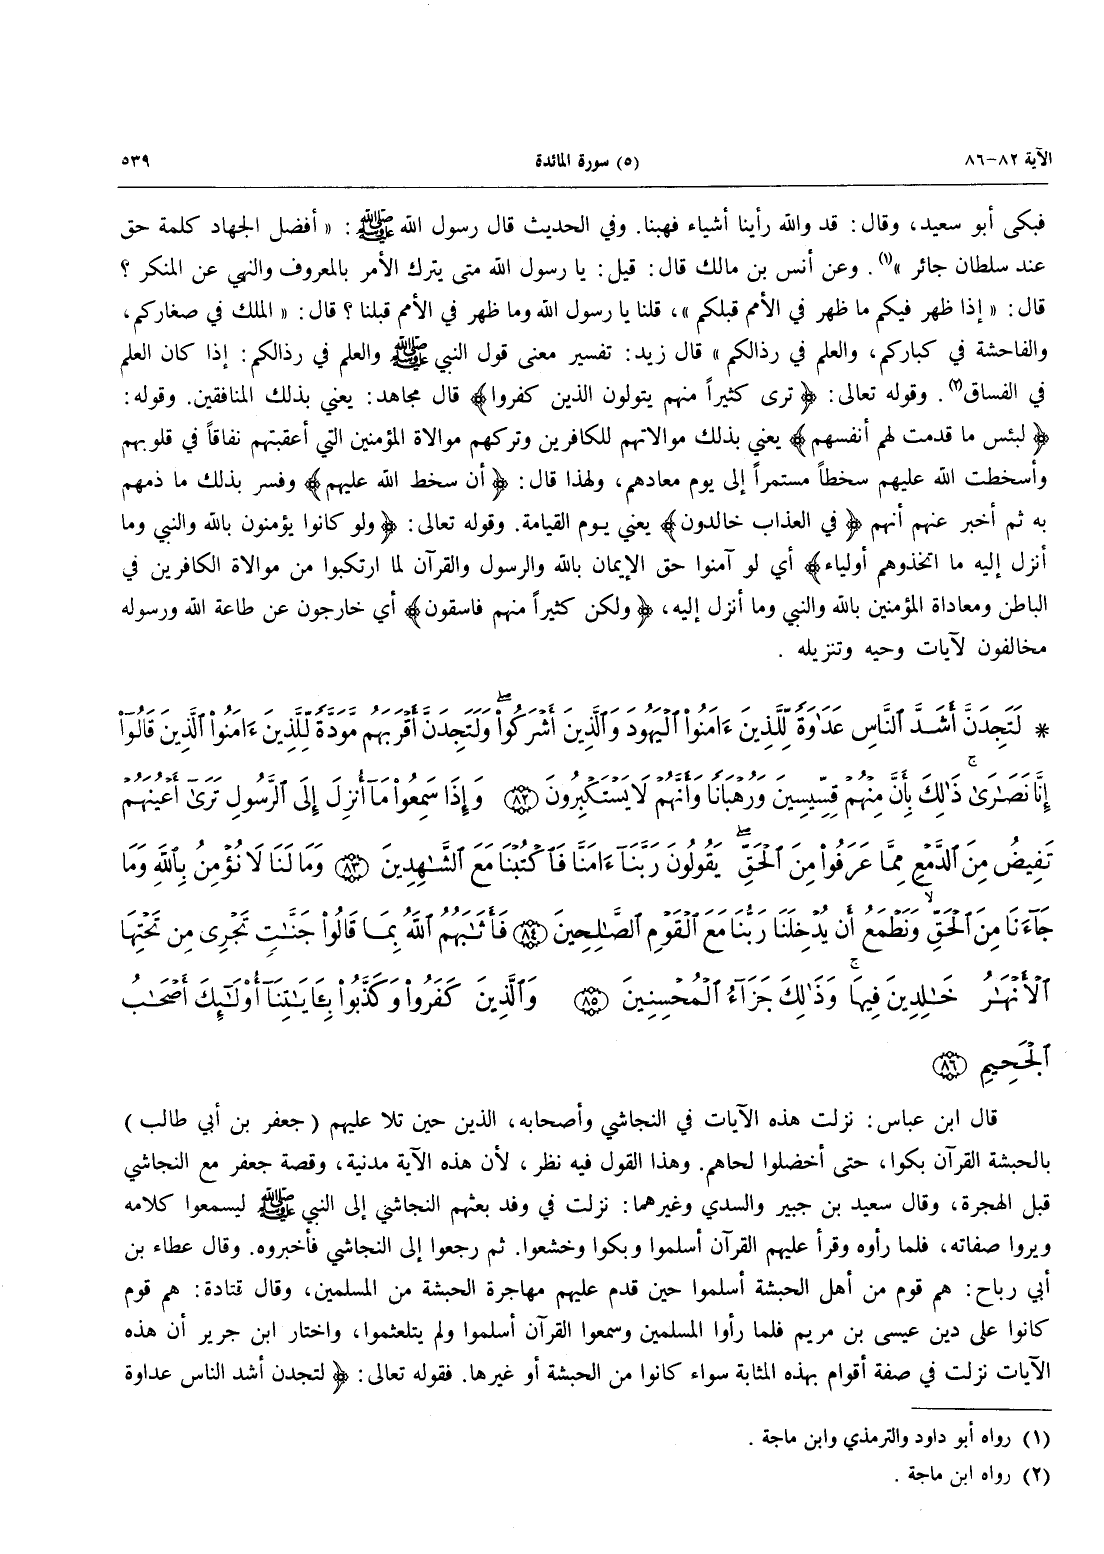 الآية ٨٢-٨٦ (٥) سورة المائدة ٥٣٩
فبكى أبو سعيد، وقال: قد والله رأينا أشياء فهبنا. وفي الحديث قال رسول الله ﷺ: « أفضل الجهاد كلمة حق
عند سلطان جائر »(١). وعن أنس بن مالك قال: قيل: يا رسول الله متى يترك الأمر بالمعروف والنهي عن المنكر ؟
قال: « إذا ظهر فيكم ما ظهر في الأمم قبلكم »، قلنا يا رسول الله وما ظهر في الأمم قبلنا ؟ قال: « الملك في صغاركم،
والفاحشة في كباركم، والعلم في رذالكم » قال زيد: تفسير معنى قول النبي ﷺ والعلم في رذالكم: إذا كان العلم
في الفساق(٢). وقوله تعالى: ﴿ ترى كثيراً منهم يتولون الذين كفروا﴾ قال مجاهد: يعني بذلك المنافقين. وقوله:
﴿ لبئس ما قدمت لهم أنفسهم﴾ يعني بذلك موالاتهم للكافرين وتركهم موالاة المؤمنين التي أعقبتهم نفاقاً في قلوبهم
وأسخطت الله عليهم سخطاً مستمراً إلى يوم معادهم، ولهذا قال: ﴿ أن سخط الله عليهم﴾ وفسر بذلك ما ذمهم
به ثم أخبر عنهم أنهم ﴿ في العذاب خالدون﴾ يعني يوم القيامة. وقوله تعالى: ﴿ولو كانوا يؤمنون بالله والنبي وما
أنزل إليه ما اتخذوهم أولياء﴾ أي لو آمنوا حق الإيمان بالله والرسول والقرآن لما ارتكبوا من موالاة الكافرين في
الباطن ومعاداة المؤمنين بالله والنبي وما أنزل إليه، ﴿ ولكن كثيراً منهم فاسقون﴾ أي خارجون عن طاعة الله ورسوله
مخالفون لآيات وحيه وتنزيله .
* لَتَجِدَنَّ أَشَدَّ ٱلنَّاسِ عَدَٰوَةً لِّلَّذِينَ ءَامَنُوا۟ ٱلْيَهُودَ وَٱلَّذِينَ أَشْرَكُوا۟ ۖ وَلَتَجِدَنَّ أَقْرَبَهُم مَّوَدَّةً لِّلَّذِينَ ءَامَنُوا۟ ٱلَّذِينَ قَالُوٓا۟
إِنَّا نَصَٰرَىٰ ۚ ذَٰلِكَ بِأَنَّ مِنْهُمْ قِسِّيسِينَ وَرُهْبَانًا وَأَنَّهُمْ لَا يَسْتَكْبِرُونَ ﴿٨٢﴾ وَإِذَا سَمِعُوا۟ مَآ أُنزِلَ إِلَى ٱلرَّسُولِ تَرَىٰٓ أَعْيُنَهُمْ
تَفِيضُ مِنَ ٱلدَّمْعِ مِمَّا عَرَفُوا۟ مِنَ ٱلْحَقِّ ۖ يَقُولُونَ رَبَّنَآ ءَامَنَّا فَٱكْتُبْنَا مَعَ ٱلشَّٰهِدِينَ ﴿٨٣﴾ وَمَا لَنَا لَا نُؤْمِنُ بِٱللَّهِ وَمَا
جَآءَنَا مِنَ ٱلْحَقِّ ۙ وَنَطْمَعُ أَن يُدْخِلَنَا رَبُّنَا مَعَ ٱلْقَوْمِ ٱلصَّٰلِحِينَ ﴿٨٤﴾ فَأَثَٰبَهُمُ ٱللَّهُ بِمَا قَالُوا۟ جَنَّٰتٍ تَجْرِى مِن تَحْتِهَا
ٱلْأَنْهَٰرُ خَٰلِدِينَ فِيهَا ۚ وَذَٰلِكَ جَزَآءُ ٱلْمُحْسِنِينَ ﴿٨٥﴾ وَٱلَّذِينَ كَفَرُوا۟ وَكَذَّبُوا۟ بِـَٔايَٰتِنَآ أُو۟لَٰٓئِكَ أَصْحَٰبُ
ٱلْجَحِيمِ ﴿٨٦﴾
قال ابن عباس: نزلت هذه الآيات في النجاشي وأصحابه، الذين حين تلا عليهم ( جعفر بن أبي طالب )
بالحبشة القرآن بكوا، حتى أخضلوا لحاهم. وهذا القول فيه نظر، لأن هذه الآية مدنية، وقصة جعفر مع النجاشي
قبل الهجرة، وقال سعيد بن جبير والسدي وغيرهما: نزلت في وفد بعثهم النجاشي إلى النبي ﷺ ليسمعوا كلامه
ويروا صفاته، فلما رأوه وقرأ عليهم القرآن أسلموا وبكوا وخشعوا. ثم رجعوا إلى النجاشي فأخبروه. وقال عطاء بن
أبي رباح: هم قوم من أهل الحبشة أسلموا حين قدم عليهم مهاجرة الحبشة من المسلمين، وقال قتادة: هم قوم
كانوا على دين عيسى بن مريم فلما رأوا المسلمين وسمعوا القرآن أسلموا ولم يتلعثموا، واختار ابن جرير أن هذه
الآيات نزلت في صفة أقوام بهذه المثابة سواء كانوا من الحبشة أو غيرها. فقوله تعالى: ﴿ لتجدن أشد الناس عداوة
(١) رواه أبو داود والترمذي وابن ماجة .
(٢) رواه ابن ماجة .